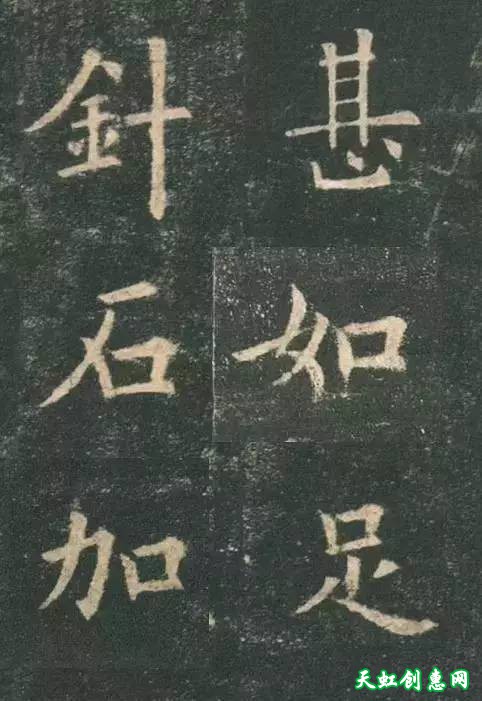 甚如足
針石加
天虹创意网